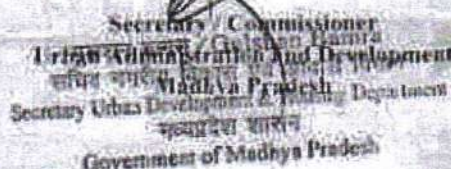 Secretary / Commissioner
Urban Administration And Development
सचिव
Madhya Pradesh
Secretary Urban Development & Department
मध्यप्रदेश शासन
Government of Madhya Pradesh